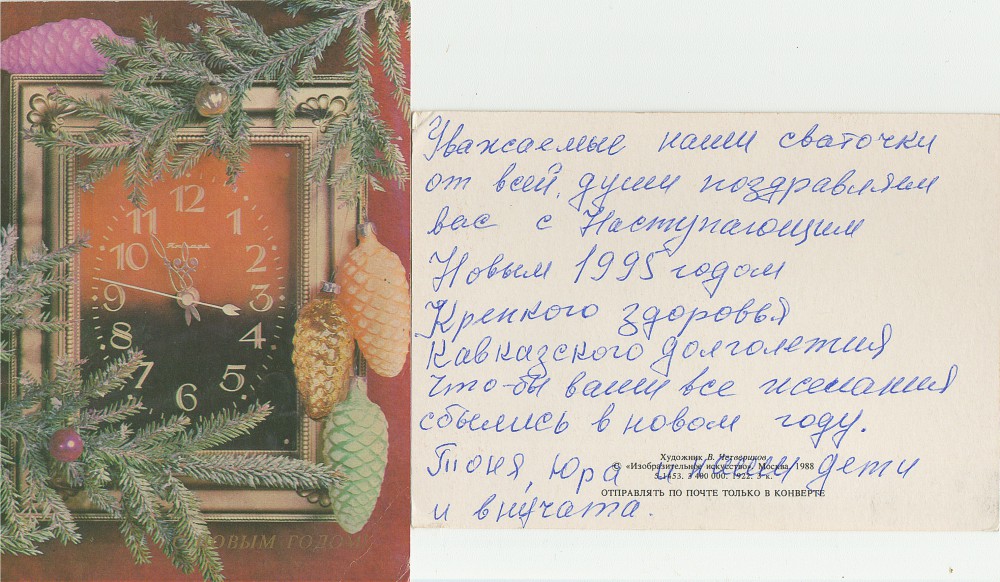 12
11
1
10
2
Январь
9
3
8
4
7
5
6
НОВЫМ ГОДОМ
Уважаемые наши сваточки
от всей души поздравляем
вас с Наступающим
Новым 1995 годом
Крепкого здоровья
Кавказского долголетия
что-бы ваши все желания
сбылись в новом году.
Тоня, Юра и наши дети
и внучата.
Художник В. Четвериков
© «Изобразительное искусство». Москва. 1988
5-1453. 3 400 000. 1922. 5 к.
ОТПРАВЛЯТЬ ПО ПОЧТЕ ТОЛЬКО В КОНВЕРТЕ